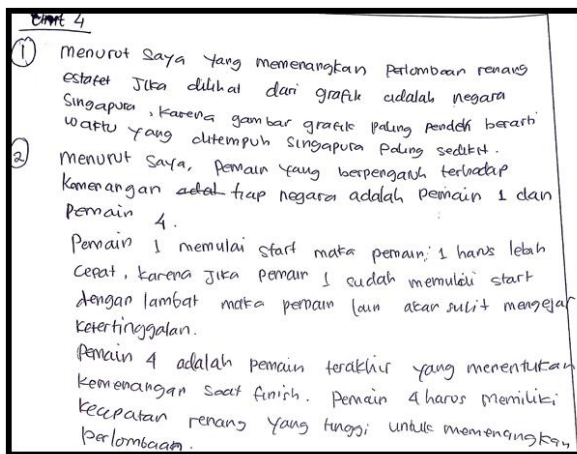 Unit 4
① menurut saya yang memenangkan perlombaan renang
estafet Jika dilihat dari grafik adalah negara
Singapura, karena gambar grafik paling pendek berarti
waktu yang ditempuh Singapura paling sedikit.
② menurut saya, Pemain yang berpengaruh terhadap
Kemenangan tiap negara adalah pemain 1 dan
Pemain 4.
Pemain 1 memulai start maka pemain 1 harus lebih
cepat, karena Jika pemain 1 sudah memulai start
dengan lambat maka pemain lain akan sulit mengejar
ketertinggalan.
Pemain 4 adalah pemain terakhir yang menentukan
kemenangan saat finish. Pemain 4 harus memiliki
kecepatan renang yang tinggi untuk memenangkan
perlombaan.